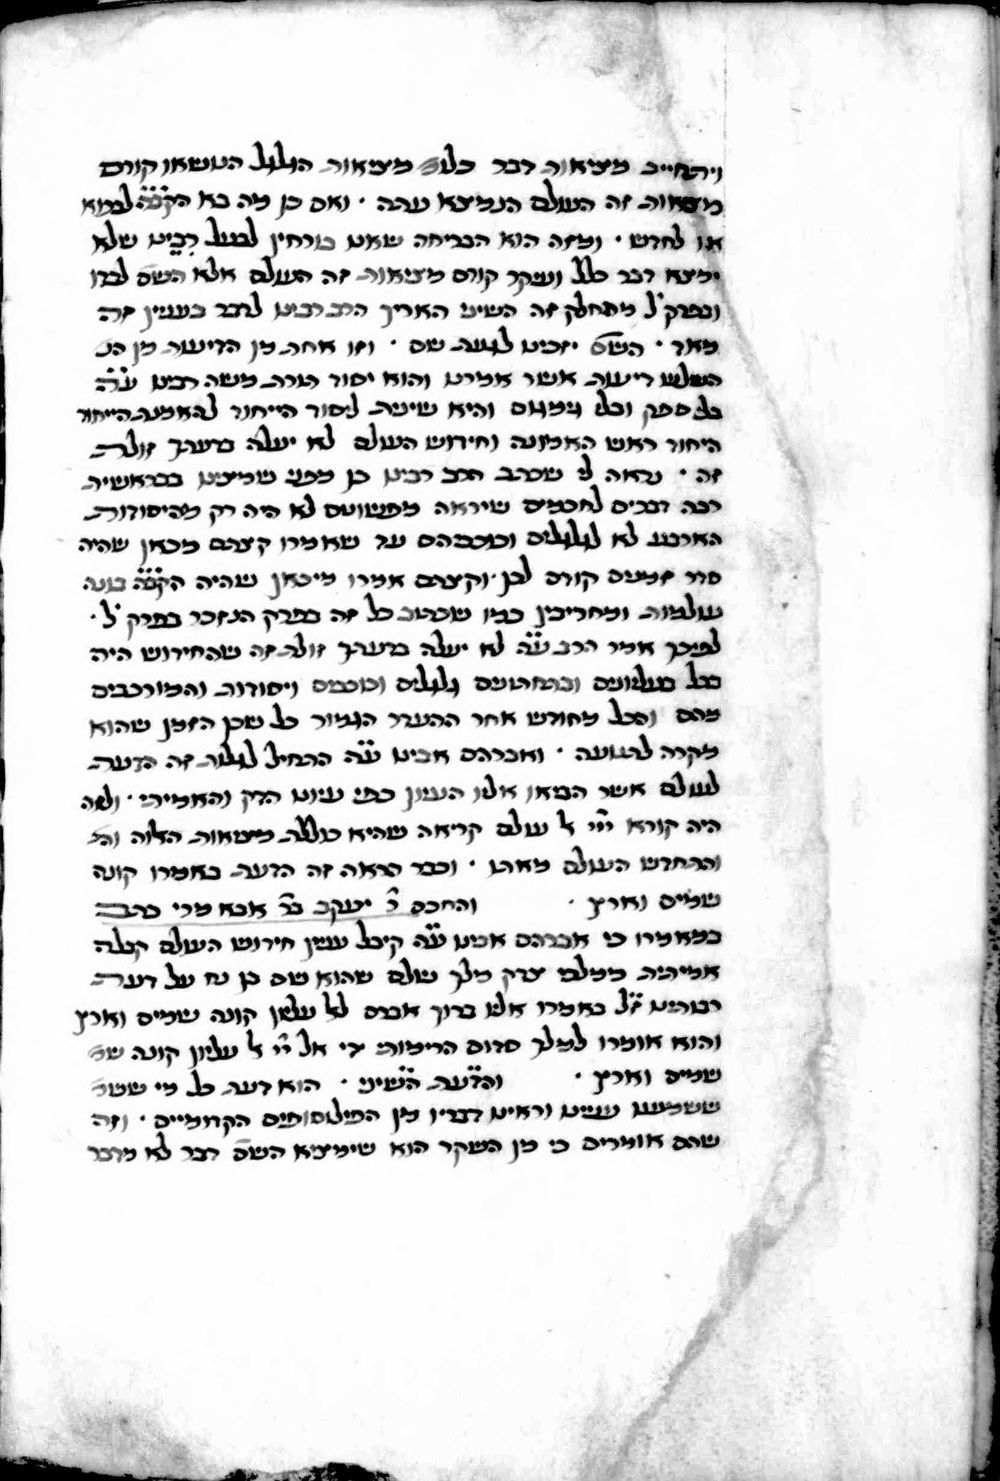 ויתחייב מציאות דבר בלתי מציאות הגלגל הנושאו קודם
מציאות זה העולם הנמצא עתה · ואם כן מה בא הקב״ה לברוא
או לחדש · ומזה הוא הבריחה שאנו בורחין לבעל רבינו שלא
ימצא דבר כלל ועיקר קודם מציאות זה העולם אלא השם לבדו
ובפרק ל׳ מהחלק זה השיני האריך הרב רבינו לדבר בענין זה
מאד · השם יזכינו לגעת שם · וזו אחת מן הדיעות מן הג׳
השלש דיעות אשר אמרנו והוא יסוד תורת משה רבינו ע״ה
בלי ספק ובלי גמגום והיא שינית ליסוד הייחוד להאמנת הייחוד
היחוד ראש האמונה וחידוש העולם לא יעלה בדעתך זולת
זה · נראה לי שכתב הרב רבינו כן מפני שמצינו בבראשית
רבה דברים לחכמים שיראה מפשוטם לא היה רק מהיסודות
הארבע לא לגלגלים וכוכביהם עד שאמרו קצתם מכאן שהיה
סדר זמנים קודם לכן · וקצתם אמרו מיכאן שהיה הקב״ה בונה
עולמות ומחריבין כמו שכתוב כל זה בפרק הנזכר בפרק ל׳ ·
לפיכך אמר הרב ע״ה לא יעלה בדעתך זולת זה שהחידוש היה
בכל בעליונים ובתחתונים גלגלים וכוכבים ויסודות והמורכבים
מהם והכל מחודש אחר ההעדר הגמור כל שכן הזמן שהוא
מקרה לתנועה · ואברהם אבינו ע״ה התחיל לגלות זה הדעת
לעולם אשר הביאו אליו העיון כפי עיונו הדק והאמיתי · ולזה
היה קורא ייי אל עולם קריאה שהיא כוללת מציאות האלוה והי׳
והתחדש העולם מאתו · וכבר הראה זה הדעת באמרו קונה
שמים וארץ · והחכם ר׳ יעקב בר׳ אבא מרי כתב
במאמרו כי אברהם אבינו ע״ה קיבל ענין חידוש העולם קבלה
אמיתית ממלכי צדק מלך שלם שהוא שם בן נח על דעת
רבותינו ז״ל באמרו אליו ברוך אברם לאל עליון קונה שמים וארץ
והוא אומרו למלך סדום הרימותי ידי אל ייי אל עליון קונה שמ׳
שמים וארץ · והדעת השיני · הוא דעת כל מי ששמ׳
ששמענו ענייניו וראינו דבריו מן הפילוסופים הקדומיים · וזה
שהם אומרים כי מן השקר הוא שימציא השם דבר לא מדבר